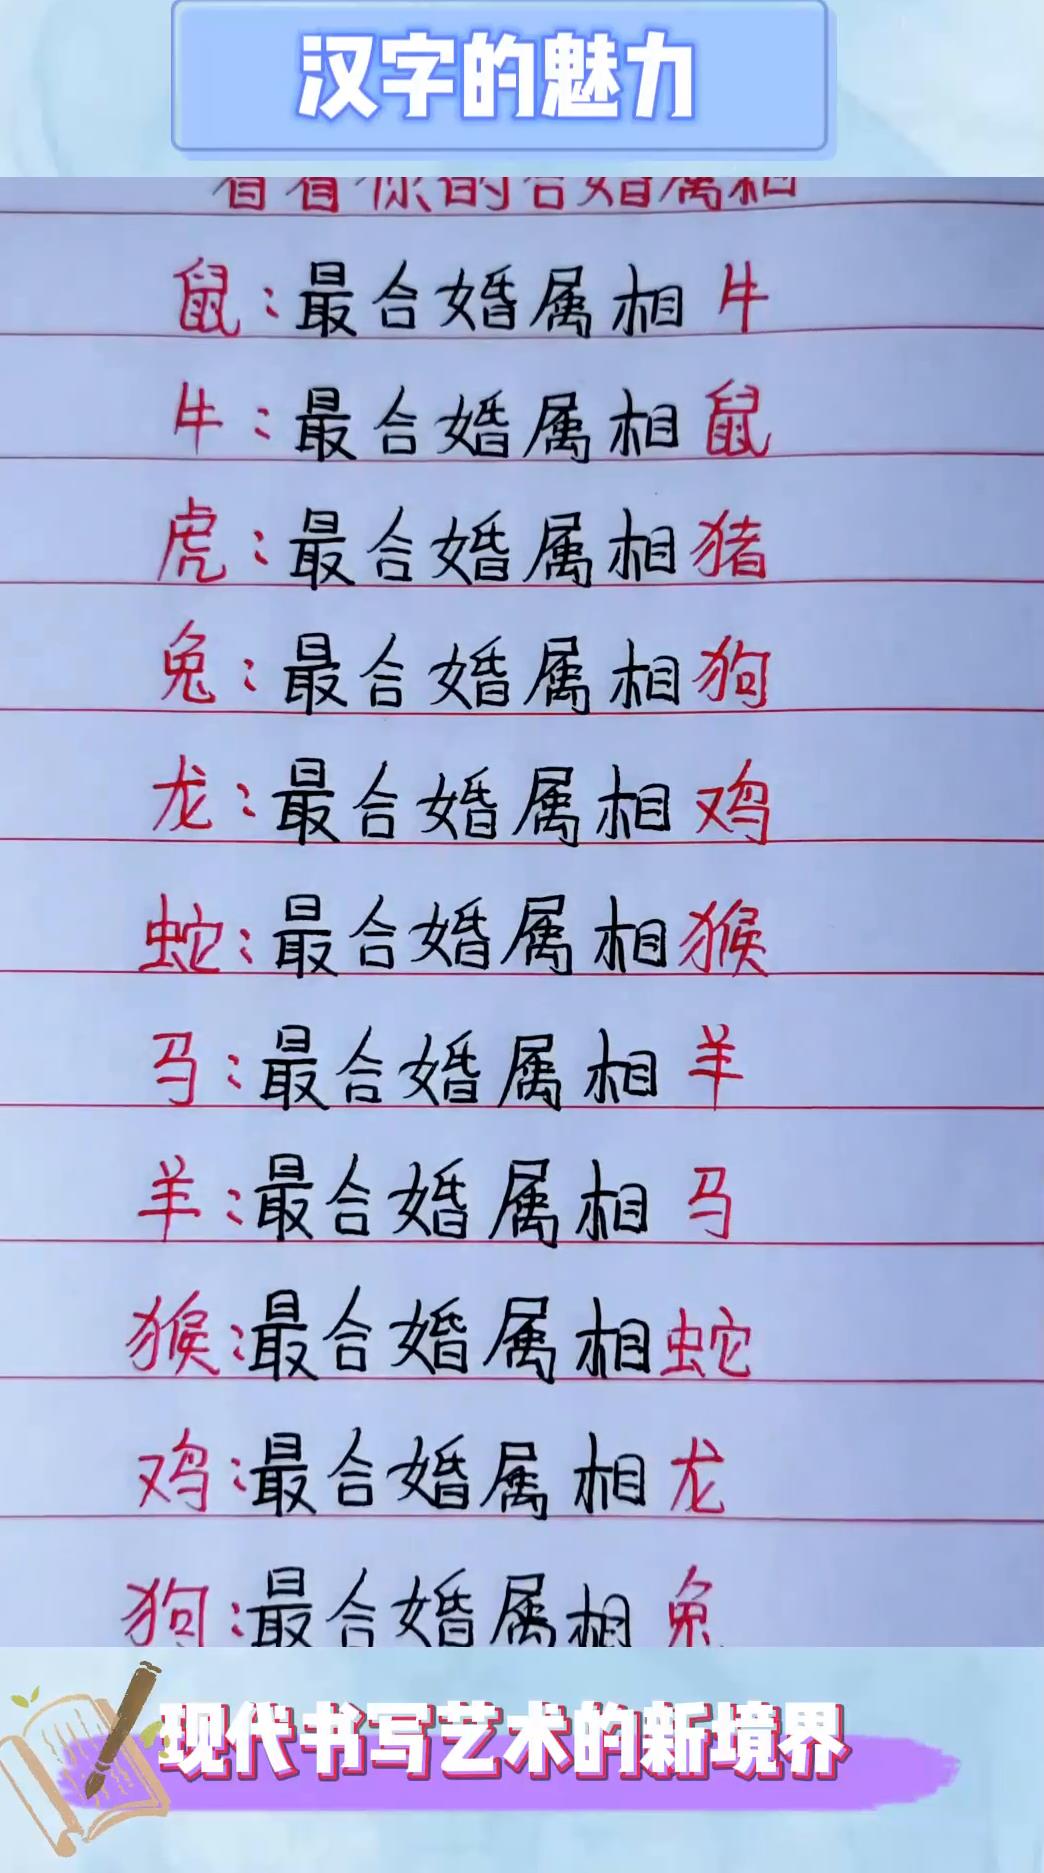 汉字的魅力
看看你的合婚属相
鼠：最合婚属相牛
牛：最合婚属相鼠
虎：最合婚属相猪
兔：最合婚属相狗
龙：最合婚属相鸡
蛇：最合婚属相猴
马：最合婚属相羊
羊：最合婚属相马
猴：最合婚属相蛇
鸡：最合婚属相龙
狗：最合婚属相兔
现代书写艺术的新境界